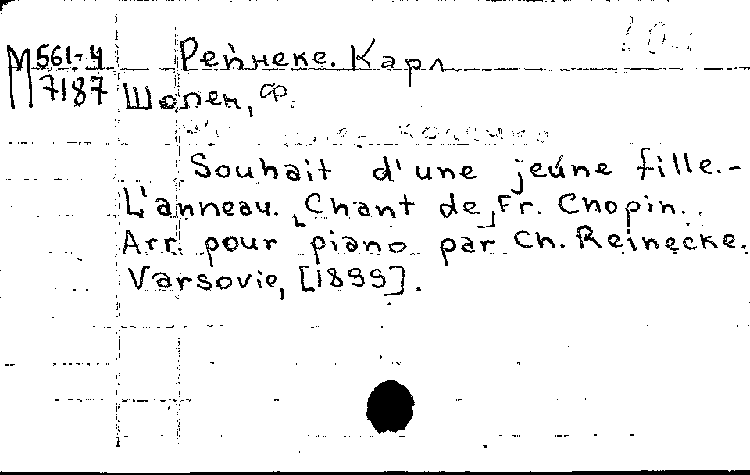 М 561-4 Рейнеке. Карл
7187 Шопен, Ф.
Souhait d'une jeune fille.-
L'anneau. [Chant de] Fr. Chopin.
Arr. pour piano par Ch. Reinecke.
Varsovie, [1899].